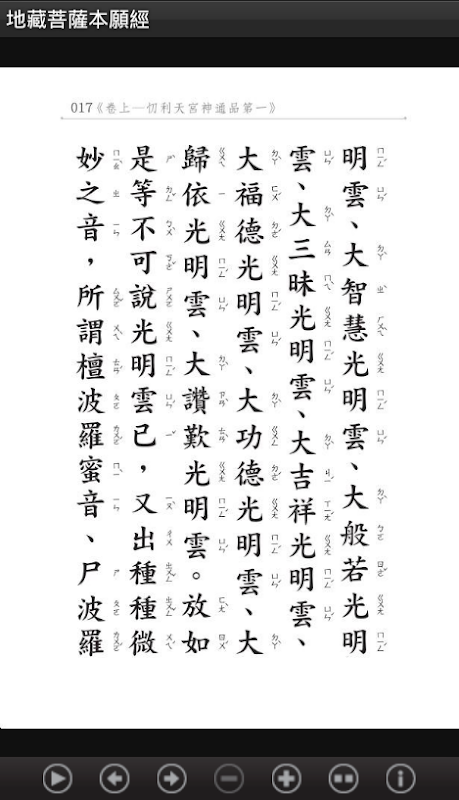 地藏菩薩本願經
017《卷上─忉利天宮神通品第一》
明雲、大智慧光明雲、大般若光明
雲、大三昧光明雲、大吉祥光明雲、
大福德光明雲、大功德光明雲、大
歸依光明雲、大讚歎光明雲。放如
是等不可說光明雲已，又出種種微
妙之音，所謂檀波羅蜜音、尸波羅